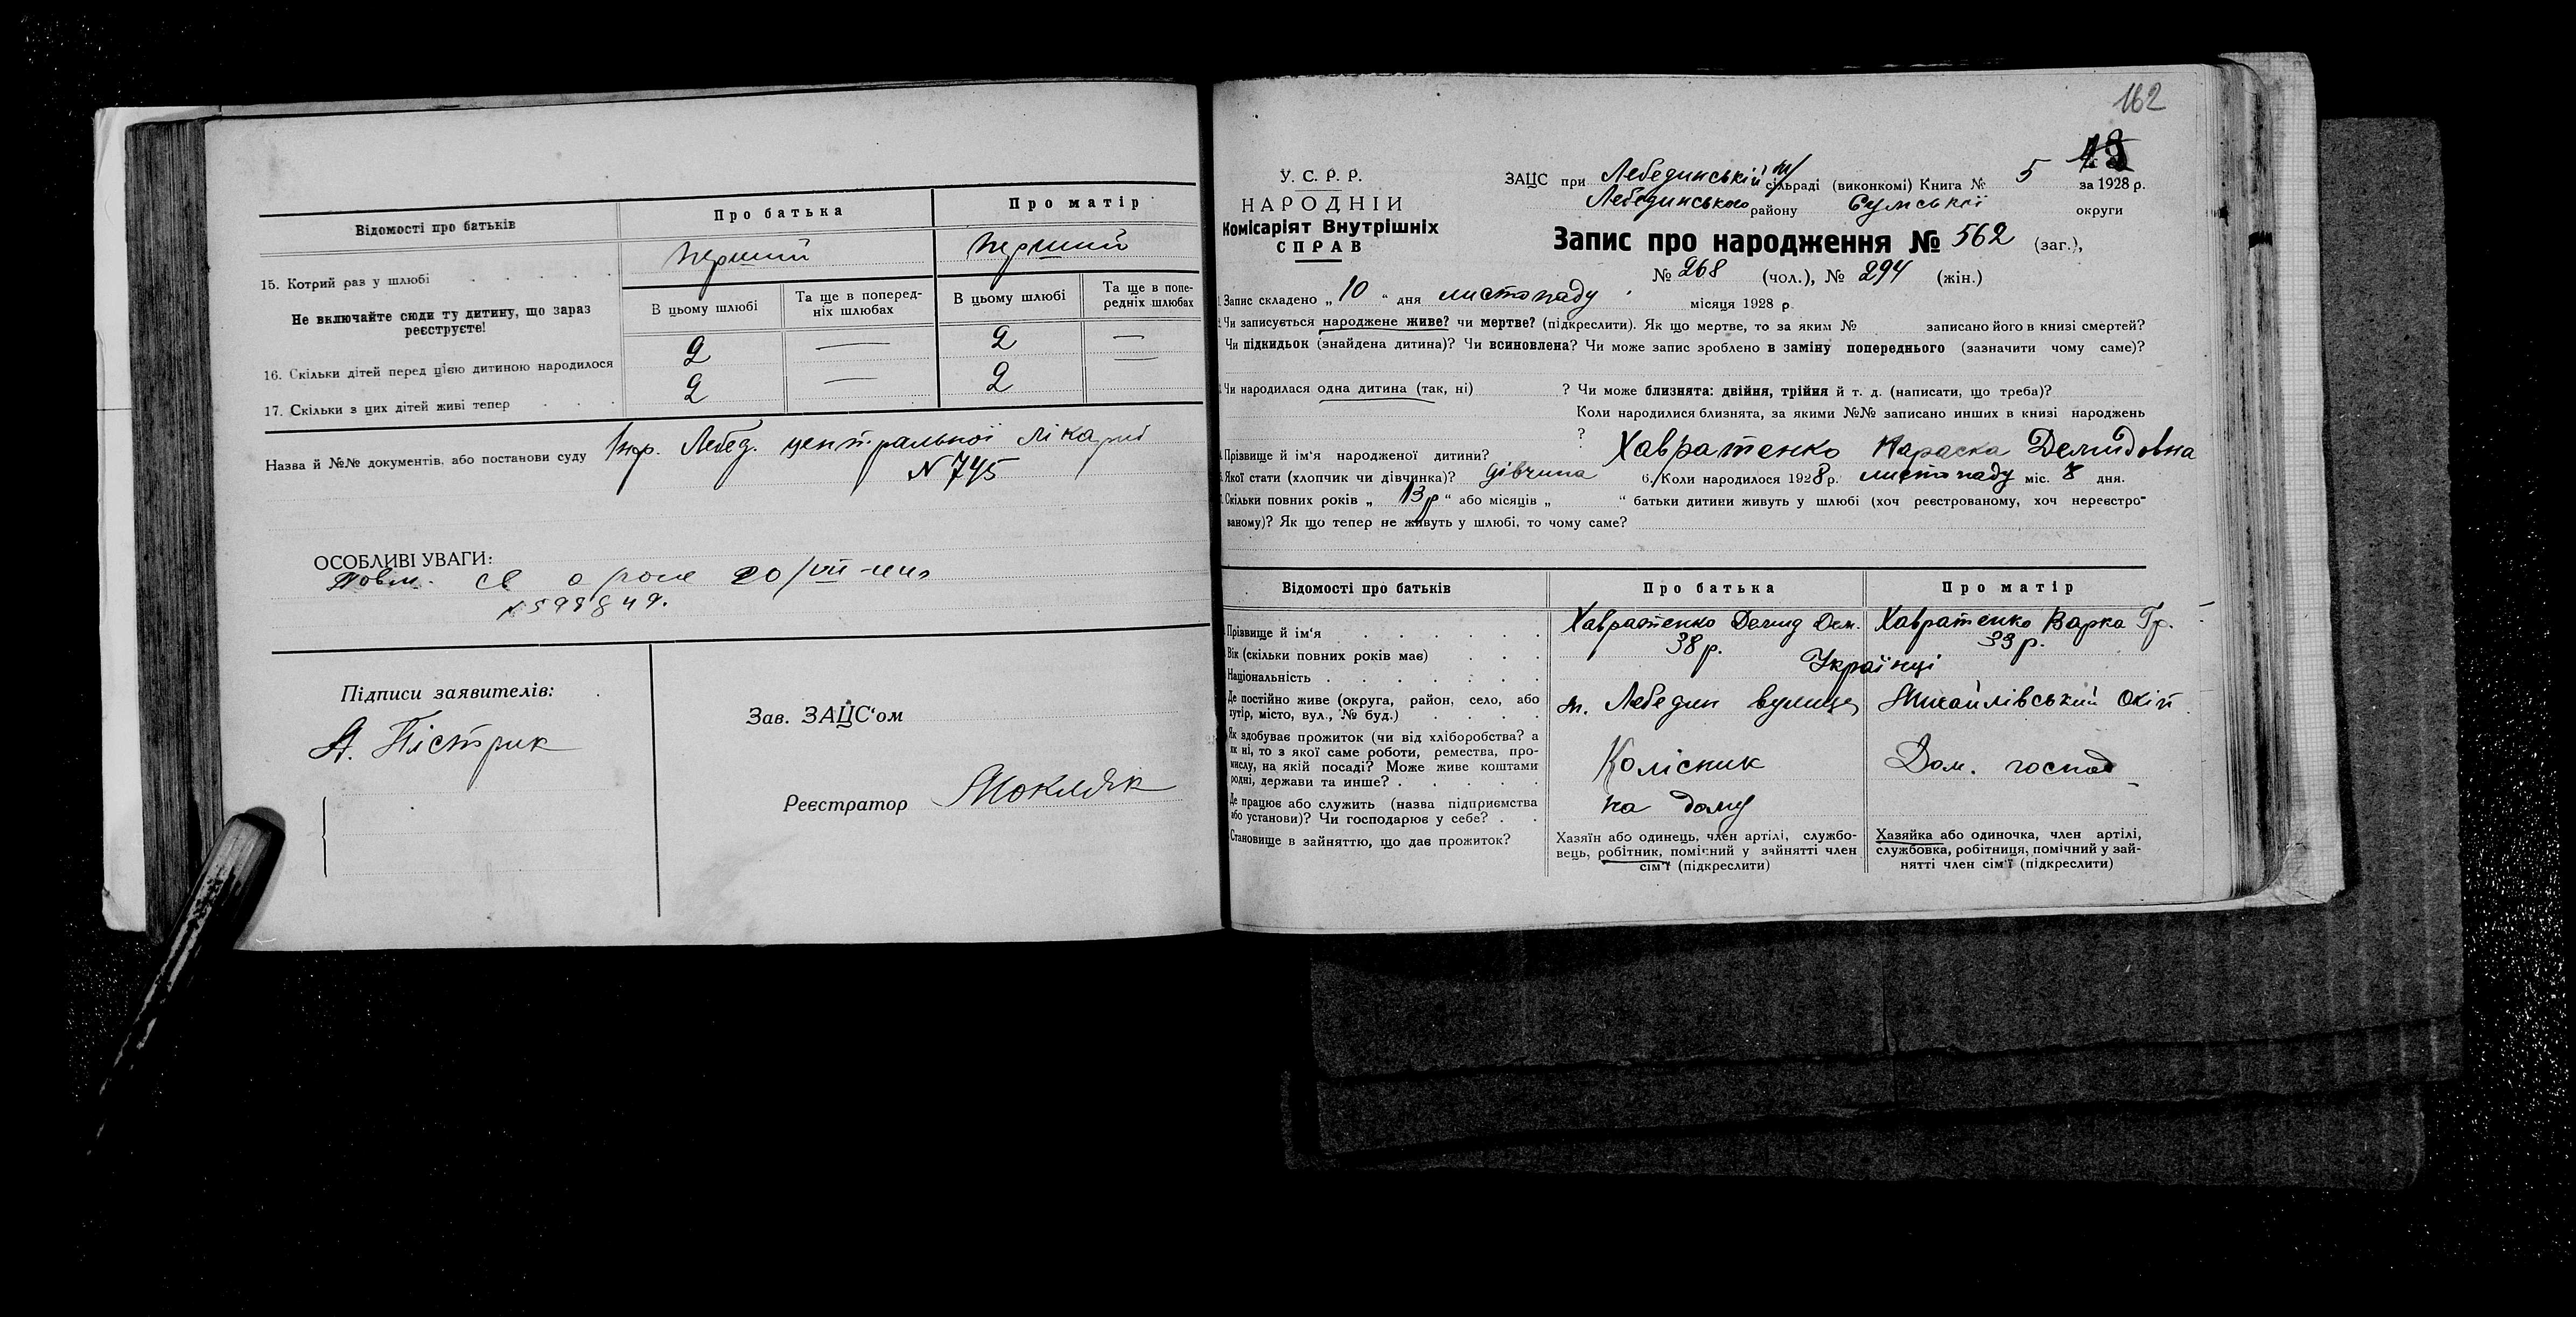 Відомості про батьків
Про батька
Про матір
15. Котрий раз у шлюбі
перший
перший
Не включайте сюди ту дитину, що зараз
реєструєте!
В цьому шлюбі
Та ще в поперед-
ніх шлюбах
В цьому шлюбі
Та ще в попе-
редніх шлюбах
16. Скільки дітей перед цією дитиною народилося
2 — 2 —
17. Скільки з цих дітей живі тепер
2 — 2 —
Назва й №№ документів, або постанови суду
Лебед. центральної лікарні
N 745
ОСОБЛИВІ УВАГИ:
Повт. св о рож 20/VII
N 599849.
Підписи заявителів:
А. Пістрик
Зав. ЗАЦС‘ом
Реєстратор Мокляк
162
У. С. Р. Р.
НАРОДНІЙ
Комісаріят Внутрішніх
СПРАВ
ЗАЦС при Лебединській м/сільраді (виконкомі) Книга № 5 за 1928 р.
Лебединського району Сумської округи
Запис про народження № 562 (заг.),
№ 268 (чол.), № 294 (жін.)
Запис складено „ 10 “ дня листопаду місяця 1928 р.
Чи записується народжене живе? чи мертве? (підкреслити). Як що мертве, то за яким № записано його в книзі смертей?
Чи підкидьок (знайдена дитина)? Чи всиновлена? Чи може запис зроблено в заміну попереднього (зазначити чому саме)?
Чи народилася одна дитина (так, ні) ? Чи може близнята: двійня, трійня й т. д. (написати, що треба)?
Коли народилися близнята, за якими №№ записано инших в книзі народжень
?
Прізвище й ім‘я народженої дитини? Хавратенко Параска Демидовна
Якої стати (хлопчик чи дівчинка)? дівчина 6. Коли народилося 1928 р. листопаду міс. 8 дня.
Скільки повних років „ 13 р “ або місяців „ “ батьки дитини живуть у шлюбі (хоч реєстрованому, хоч нереєстро-
ваному)? Як що тепер не живуть у шлюбі, то чому саме?
Відомості про батьків
Про батька
Про матір
Прізвище й ім‘я
Хавратенко Демид Дем.
Хавратенко Варка Гр.
Вік (скільки повних років має)
38 р.
33 р.
Національність
Українці
Де постійно живе (округа, район, село, або
хутір, місто, вул., № буд.)
м. Лебедин вулиця Михайлівський
Як здобуває прожиток (чи від хліборобства? а
як ні, то з якої саме роботи, ремества, про-
мислу, на якій посаді? Може живе коштами
родні, держави та инше?
Колісник
Дом. господ
Де працює або служить (назва підприємства
або установи)? Чи господарює у себе?
на дому
Становище в зайняттю, що дає прожиток?
Хазяїн або одинець, член артілі, службо-
вець, робітник, помічний у зайнятті член
сім‘ї (підкреслити)
Хазяйка або одиночка, член артілі,
службовка, робітниця, помічний у зай-
нятті член сім‘ї (підкреслити)